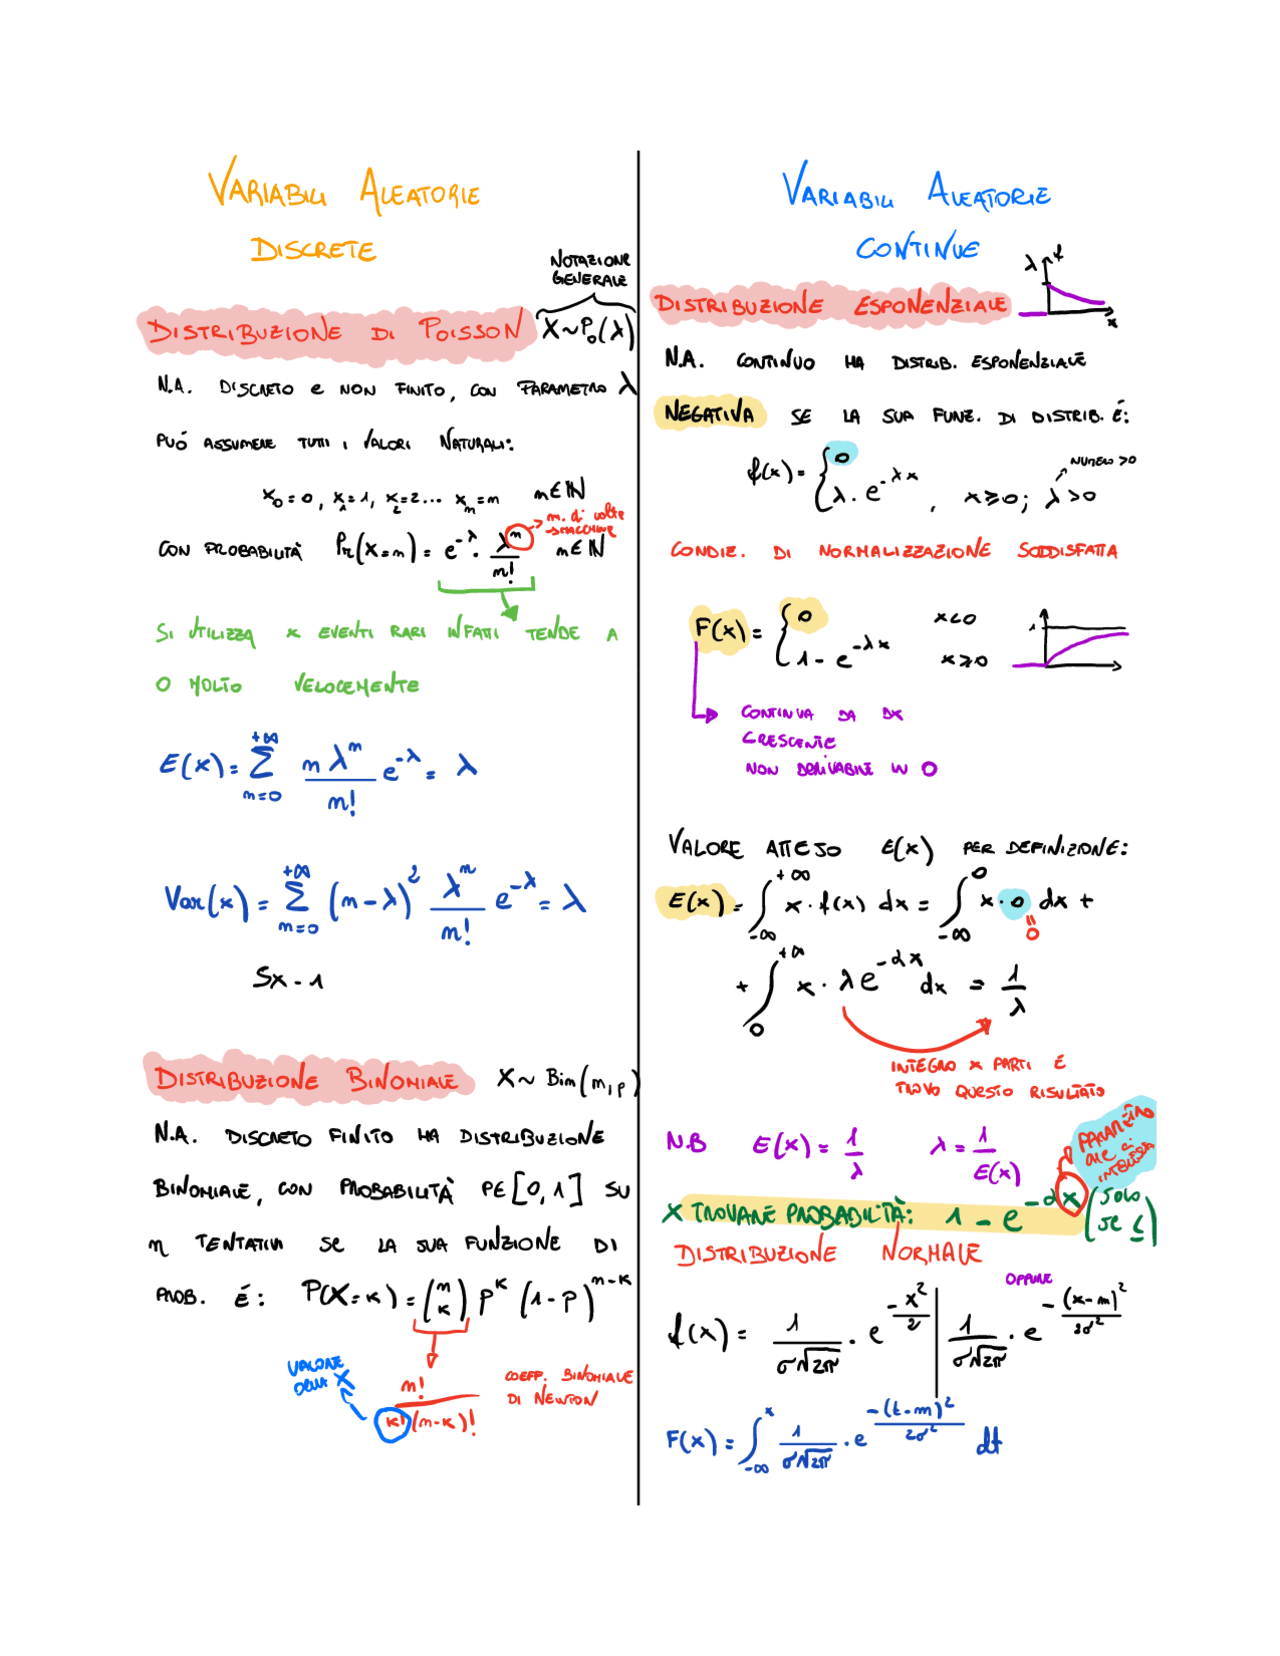 VARIABILI ALEATORIE
DISCRETE
NOTAZIONE
GENERALE
DISTRIBUZIONE DI POISSON X~Po(λ)
N.A. DISCRETO e NON FINITO, CON PARAMETRO λ
PUÓ ASSUMERE TUTTI I VALORI NATURALI:
x₀=0, x₁=1, x₂=2... xₙ=n n∈ℕ
n. di volte
CON PROBABILITÀ Pr(X=n) = e^-λ · λ^n/n! n∈ℕ
SI UTILIZZA x EVENTI RARI INFATTI TENDE A
0 MOLTO VELOCEMENTE
E(x) = Σ_{n=0}^{+∞} nλ^n/n! e^-λ = λ
Var(x) = Σ_{n=0}^{+∞} (n-λ)² λ^n/n! e^-λ = λ
5x-1
DISTRIBUZIONE BINOMIALE X~Bin(n,p)
N.A. DISCRETO FINITO HA DISTRIBUZIONE
BINOMIALE, CON PROBABILITÀ PE[0,1] SU
n TENTATIVI SE LA SUA FUNZIONE DI
PROB. É: P(X=k) = (n k) p^k (1-p)^n-k
VALORE
DELLA X
n!/k!(n-k)!
COEFF. BINOMIALE
DI NEWTON
VARIABILI ALEATORIE
CONTINUE
λ f
x
DISTRIBUZIONE ESPONENZIALE
N.A. CONTINUO HA DISTRIB. ESPONENZIALE
NEGATIVA SE LA SUA FUNZ. DI DISTRIB. É:
NUMERO >0
f(x) = { 0
λ·e^-λx, x≥0; λ>0
CONDIZ. DI NORMALIZZAZIONE SODDISFATTA
F(x) = { 0 x<0
1-e^-λx x≥0
1
CONTINUA DA DX
CRESCENTE
NON DERIVABILE IN 0
VALORE ATTESO E(x) PER DEFINIZIONE:
E(x) = ∫_{-∞}^{+∞} x·f(x) dx = ∫_{-∞}^{0} x·0 dx +
0
+ ∫_{0}^{+∞} x·λe^-λx dx = 1/λ
INTEGRO x PARTI E
TROVO QUESTO RISULTATO
N.B E(x) = 1/λ λ = 1/E(x)
PARAMETRO
CHE CI
INTERESSA
x TROVARE PROBABILITÀ: 1-e^-λx (SOLO
SE ≤)
DISTRIBUZIONE NORMALE
OPPURE
f(x) = 1/σ√2π · e^-x²/2 | 1/σ√2π · e^-(x-m)²/2σ²
F(x) = ∫_{-∞}^{x} 1/σ√2π · e^-(t-m)²/2σ² dt